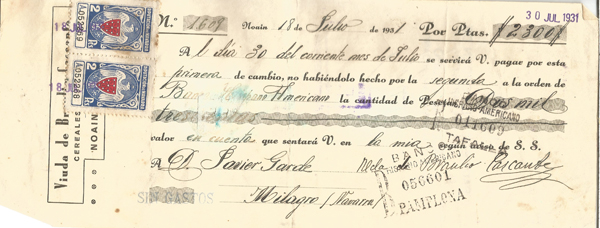 30 JUL 1931
M.º 1609 Noain 18 de Julio de 1931 Por Ptas. #2300#
A l día 30 del corriente mes de Julio se servirá V. pagar por esta
primera de cambio, no habiéndolo hecho por la segunda a la orden de
Banco Hispano Americano la cantidad de Pesetas Dos mil
trescientas
valor en cuenta que sentará V. en la mia según aviso de S. S.
A D. Javier Garde Vda de Braulio Cascante
Milagro (Navarra)
SIN GASTOS
AMERICANO
011609
TAFALLA
BANCO
HISPANO AMERICANO
056601
PAMPLONA
Viuda de Br. Cascante
CEREALES
NOAIN
2 Pts
A052269
2 Pts
A052268